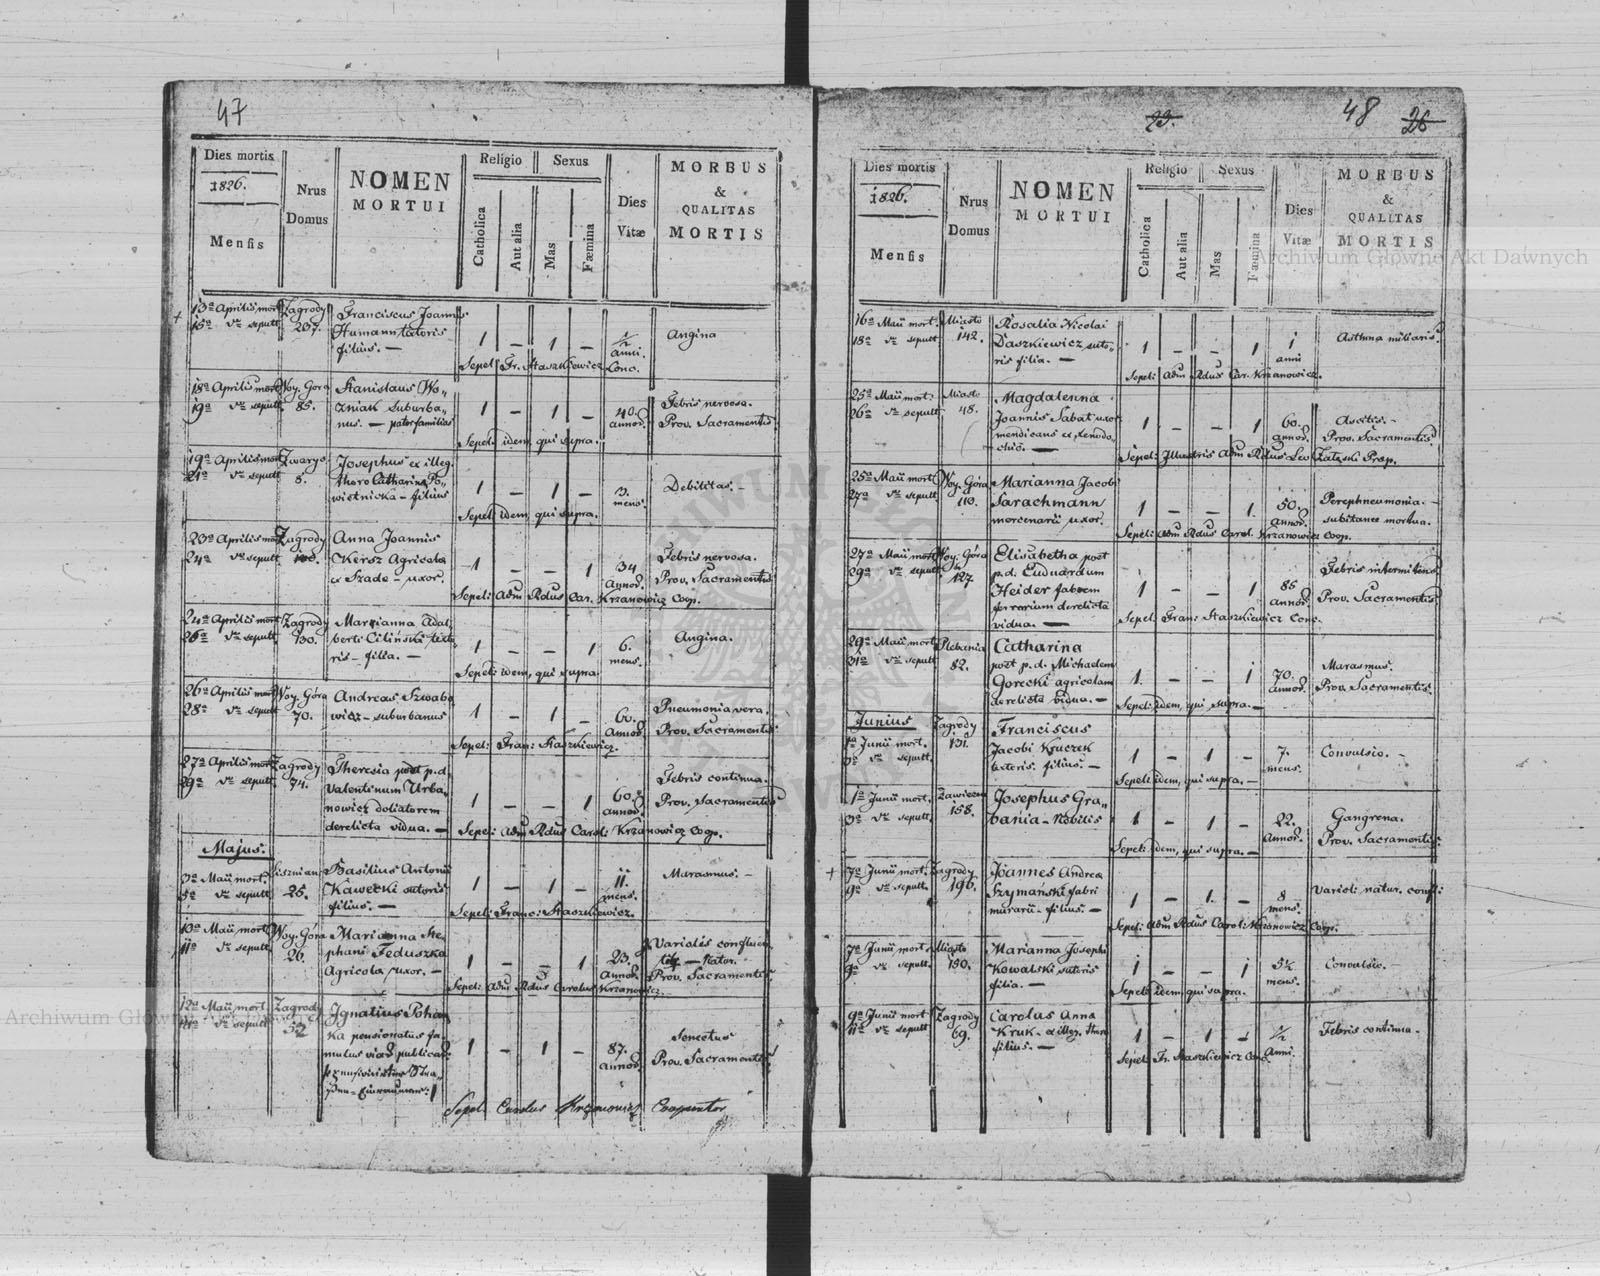 47
Dies mortis
1826.
Mensis
Nrus
Domus
NOMEN
MORTUI
Religio
Catholica
Aut alia
Sexus
Mas
Fæmina
Dies
Vitæ
MORBUS
&
QUALITAS
MORTIS
13a Aprilis mort. Zagrody Franciscus Joannis
15a dto sepult. 207. Humann textoris 1 — 1 — 1/2 Angina
filius. — anni.
Sepel: Fr. Staszkiewicz Conc.
18a Aprilis mort. Woy. Gora Stanislaus Wo„
19a dto sepult. 85. zniak suburba„ 1 — 1 — 40. Febris nervosa.
nus. — pater familias annor. Prov. Sacramentis
Sepel: idem, qui supra.
19a Aprilis mort. Zwaryc Josephus ex illeg.
21a dto sepult. 5. thoro Catharina Po„ 1 — 1 — 3. Debilitas. —
wietnicka — filius mens.
Sepel: idem, qui supra.
23a Aprilis mort. Zagrody Anna Joannis
24a dto sepult. Kersz Agricola 1 — — 1 34 Febris nervosa.
ex Szade — uxor. Annor. Prov. Sacramentis
Sepel: Adm Rdus Car. Krzanowicz Coop.
24a Aprilis mort. Zagrody Marianna Adal„
26a dto sepult. 130. berti Ciliński texto„ 1 — — 1 6. Angina.
ris — filia. — mens.
Sepel: idem, qui supra.
26a Aprilis mort. Woy. Góra Andreas Szwabo
28a dto sepult. 70. wicz — suburbanus 1 — 1 — 60. Pneumonia vera.
Annor. Prov. Sacramentis
Sepel: Fran: Staszkiewicz.
27a Aprilis mort. Zagrody Theresia post p.d.
29a dto sepult. 74. Valentinum Urba„ 1 — — 1 60. Febris continua.
nowicz doliatorem annor. Prov. Sacramentis
derelicta vidua. —
Sepel: Adm Rdus Carol: Krzanowicz Coop.
Majus.
3a Maii mort. Liszniam Basilius Antonii
5a dto sepult. 25. Kawecki sutoris 1 — 1 — 11. Marasmus. —
filius. — mens.
Sepel: Franc: Staszkiewicz.
10a Maii mort. Woy. Góra Marianna Ste„
11a dto sepult. 26. phani Feduszka 1 — — 1 23. Variolis confluen„
Agricola uxor. — Annor. Prov. Sacramentis
Sepel: Adm Rdus Carolus Krzanowicz.
12a Maii mort. Zagrody Ignatius Poha
14a dto sepult. 52 ka pensionatus fa„ 1 — 1 — 87. Senectus
mulus viar. publicar. annor. Prov. Sacramentis
Sepel: Carolus Krzanowicz Cooperator
48
Dies mortis
1826.
Mensis
Nrus
Domus
NOMEN
MORTUI
Religio
Catholica
Aut alia
Sexus
Mas
Fæmina
Dies
Vitæ
MORBUS
&
QUALITAS
MORTIS
16a Maii mort. Miasto Rosalia Nicolai
18a dto sepult. 142. Daszkiewicz suto„ 1 — — 1 1 Asthma miliaris
ris filia. — anni
Sepel: Adm Rdus Car. Krzanowicz.
25a Maii mort. Miasto Magdalenna
26a dto sepult. 48. Joannis Sabat uxor 1 — — 1 60. Ascitis. —
mendicans ex Xenodo„ annor. Prov. Sacramentis
chio. —
Sepel: Illustris Adm Rdus Leo Załęski Præp.
25a Maii mort. Woy. Góra Marianna Jacobi
27a dto sepult. 110. Sarachmann 1 — — 1. 50. Perephneumonia. —
mercenarii uxor. Annor. subitanee mortua.
Sepel: Adm Rdus Carol. Krzanowicz Coop.
27a Maii mort. Woy. Góra Elisabetha post
29a dto sepult. 127. p.d. Eduardum
Heider fabrem 1 — — 1 85 Febris intermitens.
ferrarium derelicta annor. Prov. Sacramentis
vidua. —
Sepel: Fran: Staszkiewicz Conc.
29a Maii mort. Plebania Catharina
31a dto sepult. 82. post p.d. Michaelem
Gorecki agricolam 1. — — 1 70. Marasmus.
derelicta vidua. — annor. Prov. Sacramentis.
Sepel: idem, qui supra. —
Junius Zagrody Franciscus
1a Junii mort. 131. Jacobi Kruczek
3a dto sepult. textoris filius. — 1 — 1 — 7. Convulsio. —
mens.
Sepel: idem, qui supra. —
1a Junii mort. Zawieczna Josephus Gra„
3a dto sepult. 158. bania — Nobilis 1 — 1 — 22. Gangrena.
Annor. Prov. Sacramentis.
Sepel: idem, qui supra. —
7a Junii mort. Zagrody Joannes Andrea
9a dto sepult. 196. Szymański fabri 1 — 1. — 8 Varioli natur. confl:
murarii — filius. — mens.
Sepel: Adm Rdus Carol: Krzanowicz Coop.
7a Junii mort. Miasto Marianna Josephi
9a dto sepult. 150. Kowalski sutoris 1 — — 1 5½ Convulsio. —
filia. — mens.
Sepel: idem, qui supra.
9a Junii mort. Zagrody Carolus Anna
11a dto sepult. 69. Kruk — ex illeg. thoro 1 — 1 — 1/2 Febris continua. —
filius. — Anni.
Sepel: Fr. Staszkiewicz Conc.
Archiwum Główne Akt Dawnych
Archiwum Główne Akt Dawnych